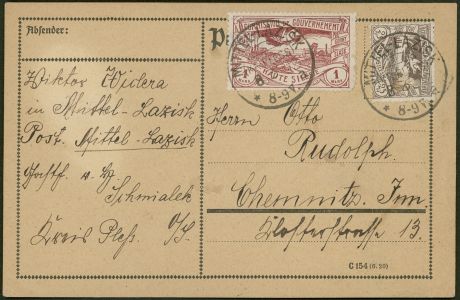 Absender:
Viktor Widera
in Mittel-Lazisk
Post. Mittel-Lazisk
Schmialek
Kreis Pleß. O/S.
COMMISSION DE GOUVERNEMENT
HAUTE SILÉSIE
1 1
MITTEL LAZISK
* 8-9V
MITTEL LAZISK
* 8-9V
Herrn Otto
Rudolph.
Chemnitz. Inn.
Klosterstrasse 13.
C 154 (6. 20)